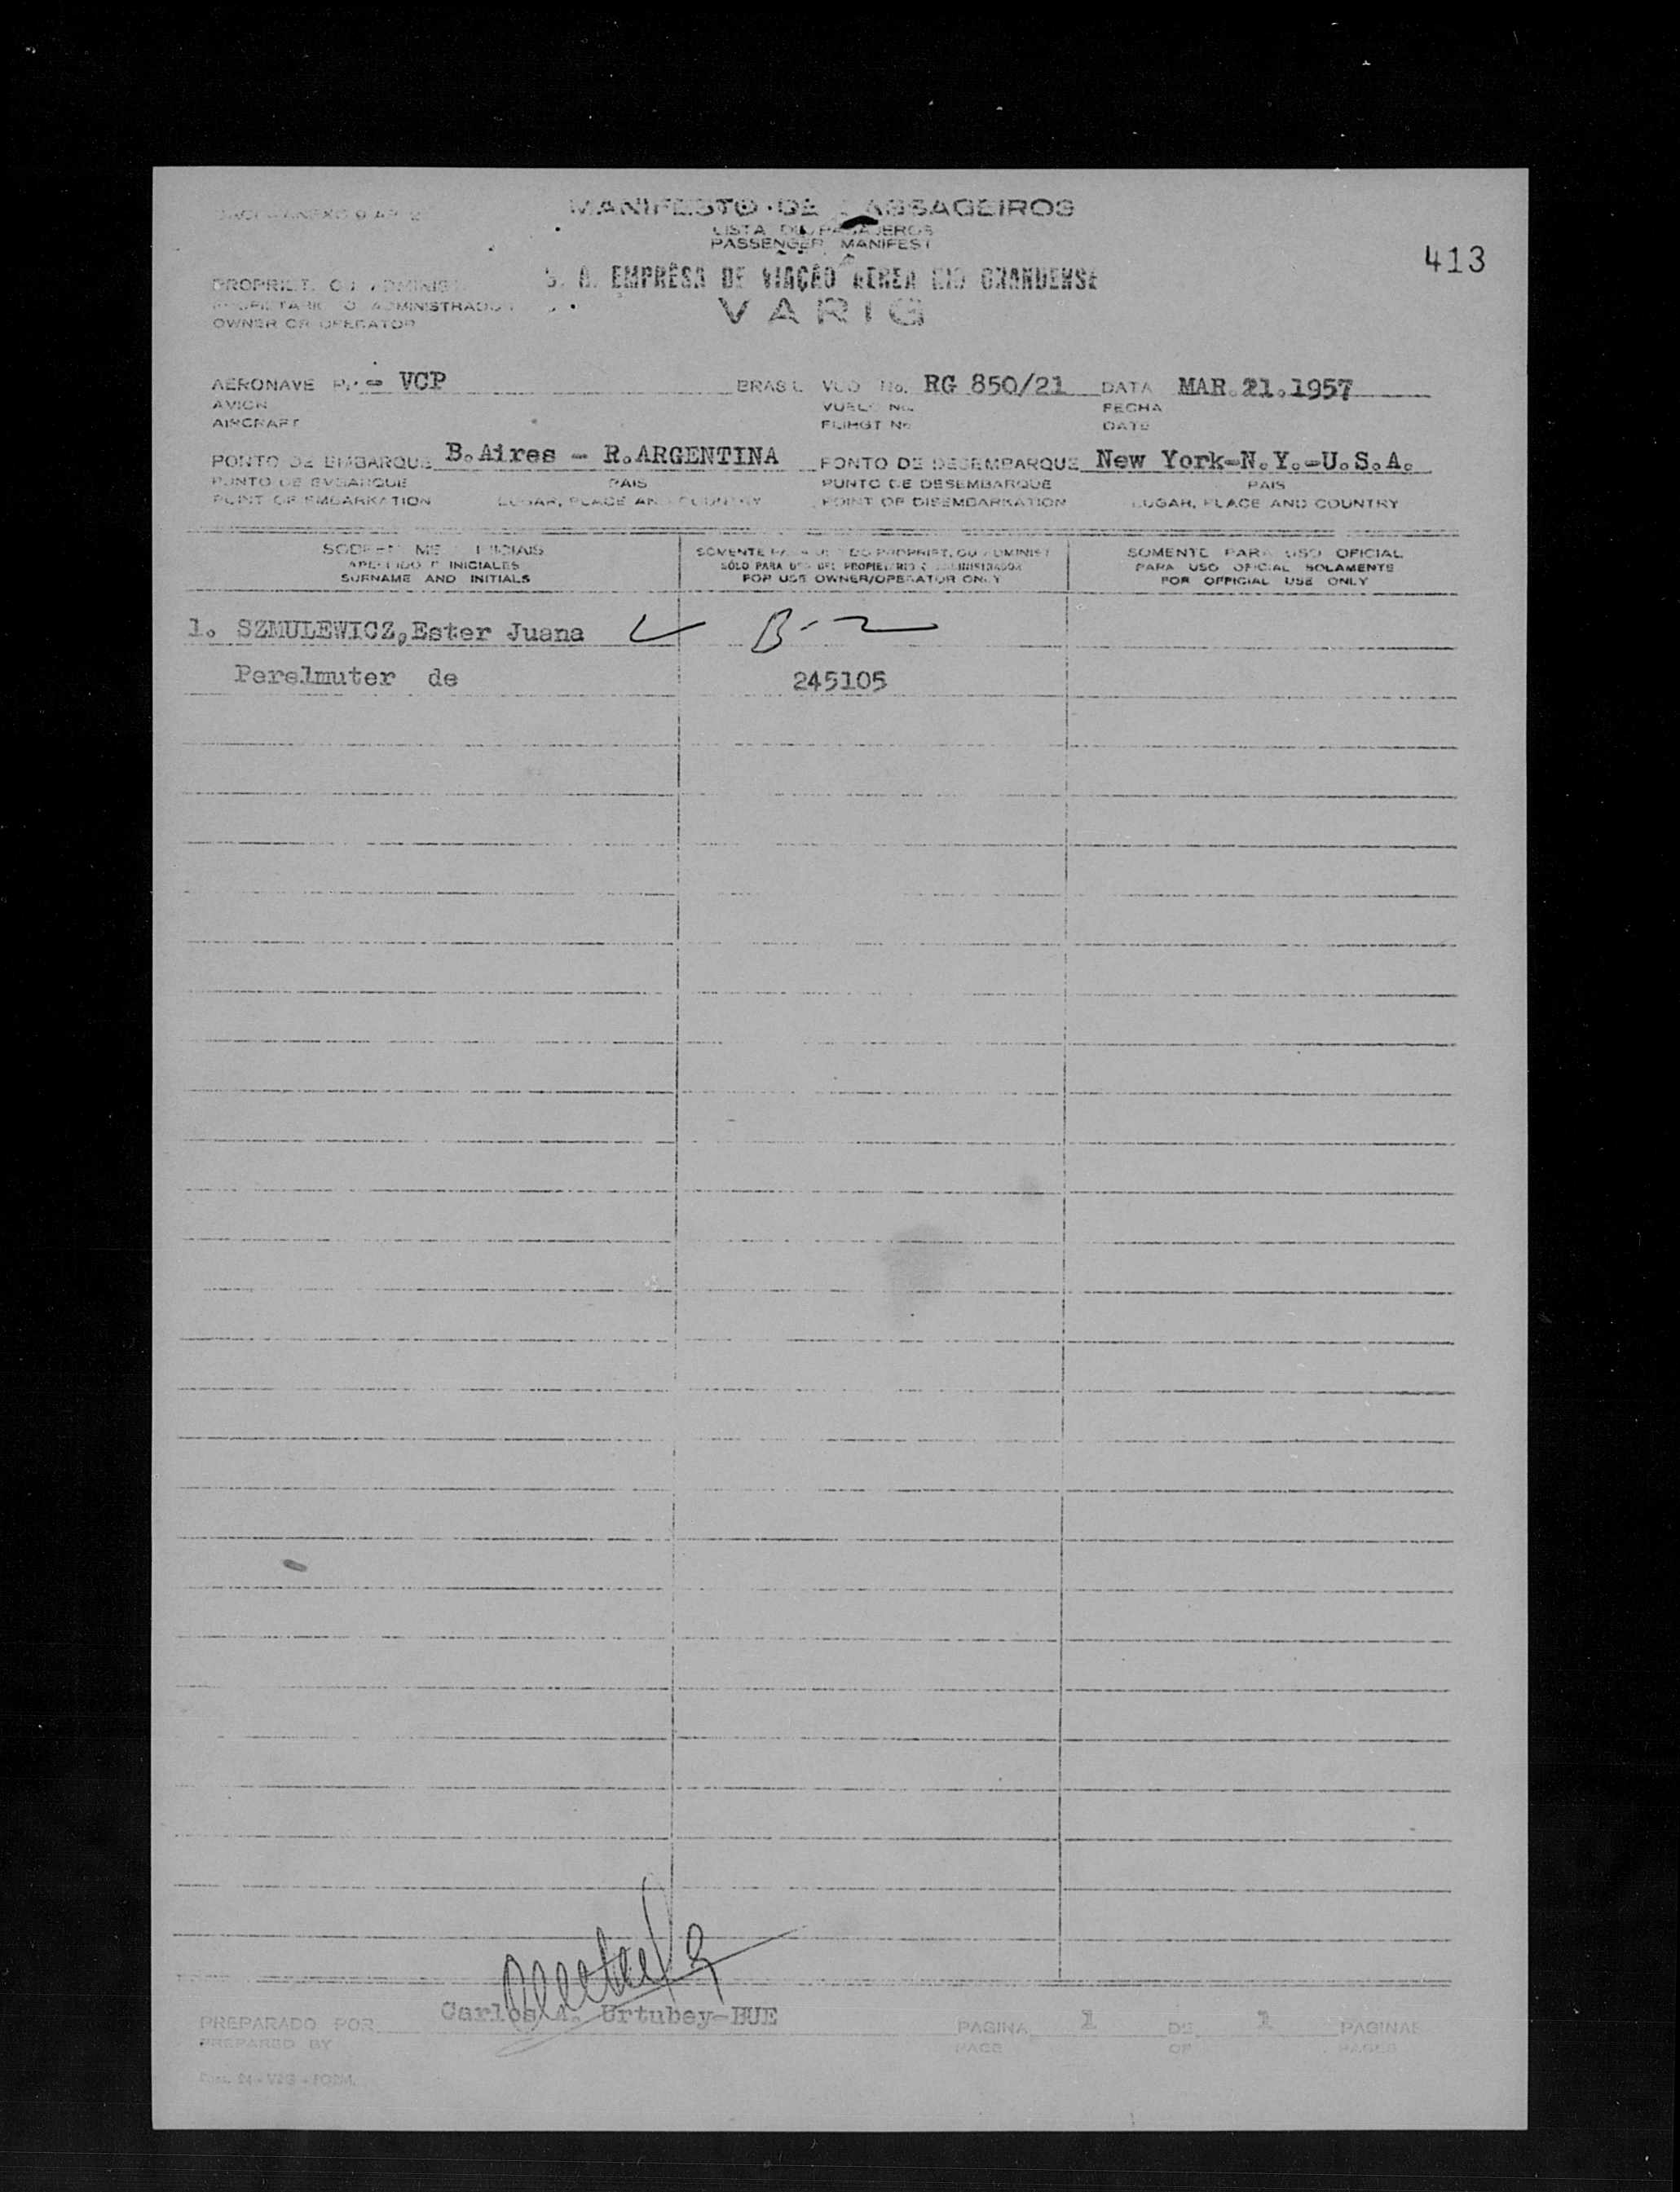 MANIFESTO DE PASSAGEIROS
LISTA DE PASAJEROS
PASSENGER MANIFEST
413
PROPRIET. OU ADMINIST.
S. A. EMPRÊSA DE VIAÇÃO AEREA RIO GRANDENSE
PROPIETARIO O ADMINISTRADOR
VARIG
OWNER OR OPERATOR
AERONAVE PP - VCP BRASIL VUO No. RG 850/21 DATA MAR.21.1957
AVION VUELO No. FECHA
AIRCRAFT FLIHGT No DATE
PONTO DE EMBARQUE B.Aires - R.ARGENTINA PONTO DE DESEMBARQUE New York-N.Y.-U.S.A.
PUNTO DE EMBARQUE PAIS PUNTO DE DESEMBARQUE PAIS
POINT OF EMBARKATION LUGAR, PLACE AND COUNTRY POINT OF DISEMBARKATION LUGAR, PLACE AND COUNTRY
SOBRENOME E INICIAIS SOMENTE PARA USO DO PROPRIET. OU ADMINIST. SOMENTE PARA USO OFICIAL
APELLIDO E INICIALES SÓLO PARA USO DEL PROPIETARIO O ADMINISTRADOR PARA USO OFICIAL SOLAMENTE
SURNAME AND INITIALS FOR USE OWNER/OPERATOR ONLY FOR OFFICIAL USE ONLY
1. SZMULEWICZ,Ester Juana B-2
Perelmuter de 245105
PREPARADO POR Carlos A. Urtubey-BUE PAGINA 1 DE 1 PAGINAS
PREPARED BY PAGE OF PAGES